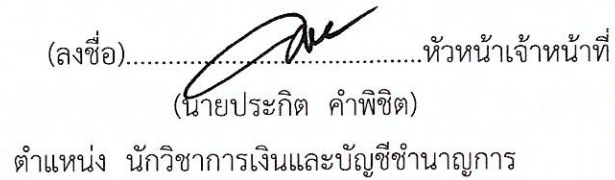 (ลงชื่อ)....................................หัวหน้าเจ้าหน้าที่
(นายประกิต คำพิชิต)
ตำแหน่ง นักวิชาการเงินและบัญชีชำนาญการ